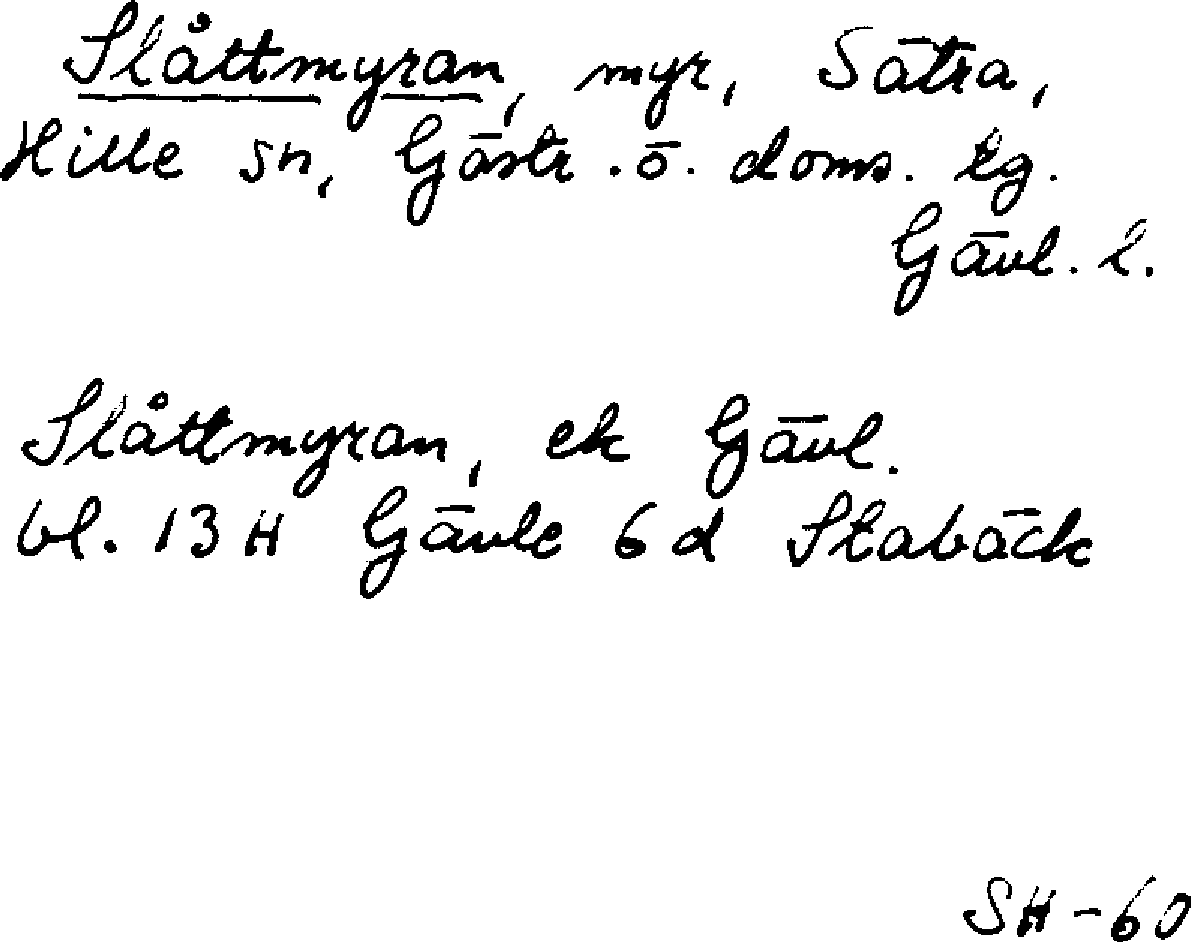 Slåttmyran, myr, Sätra,
Hille sn, Gästr. ö. doms. tg.
Gävl. l.
Slåttmyran, ek Gävl.
bl. 13 H Gävle 6 d Stabäck
SH-60